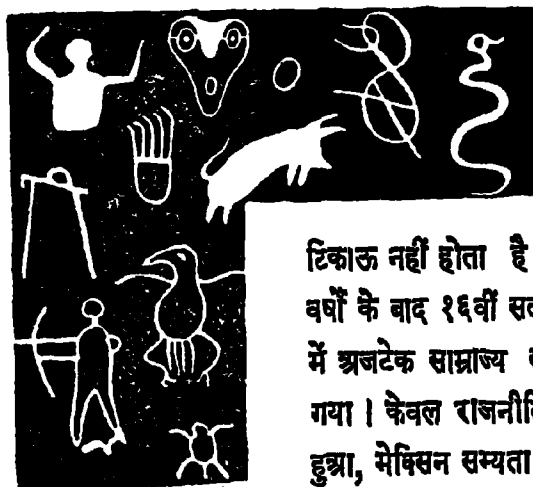 टिकाऊ नहीं होता है
वर्षों के बाद १६वीं
में अजटेक साम्राज्य
गया । केवल
हुआ, मेक्सिन सभ्यता